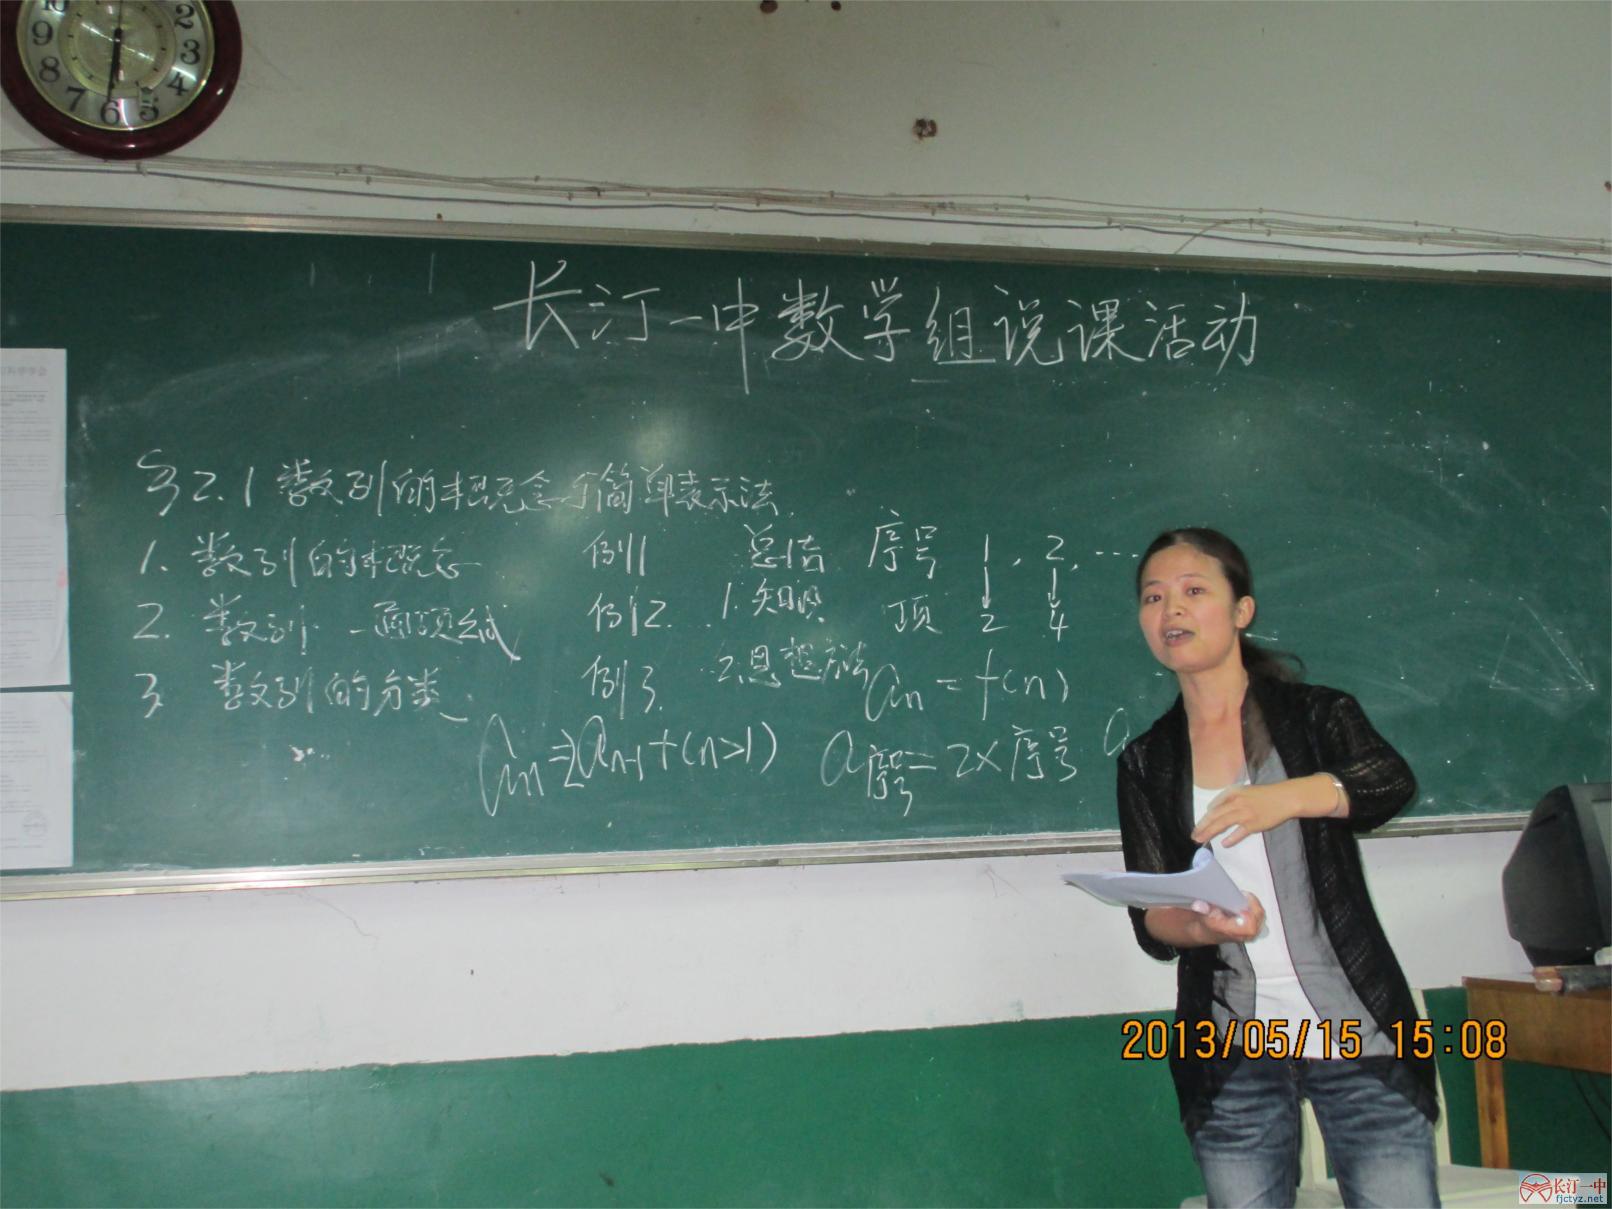 长汀一中数学组说课活动
§2.1 数列的概念与简单表示法
1. 数列的概念 例1 总结 序号 1, 2, ...
2. 数列 通项公式 例2. 1. 知识 项 2 4
3 数列的分类 例3. 2. 思想方法 an = f(n)
an=2an-1+(n>1) a序号=2×序号 a
10 9 8 7 6 5 4 3 2
2013/05/15 15:08
长汀一中
fjctyz.net